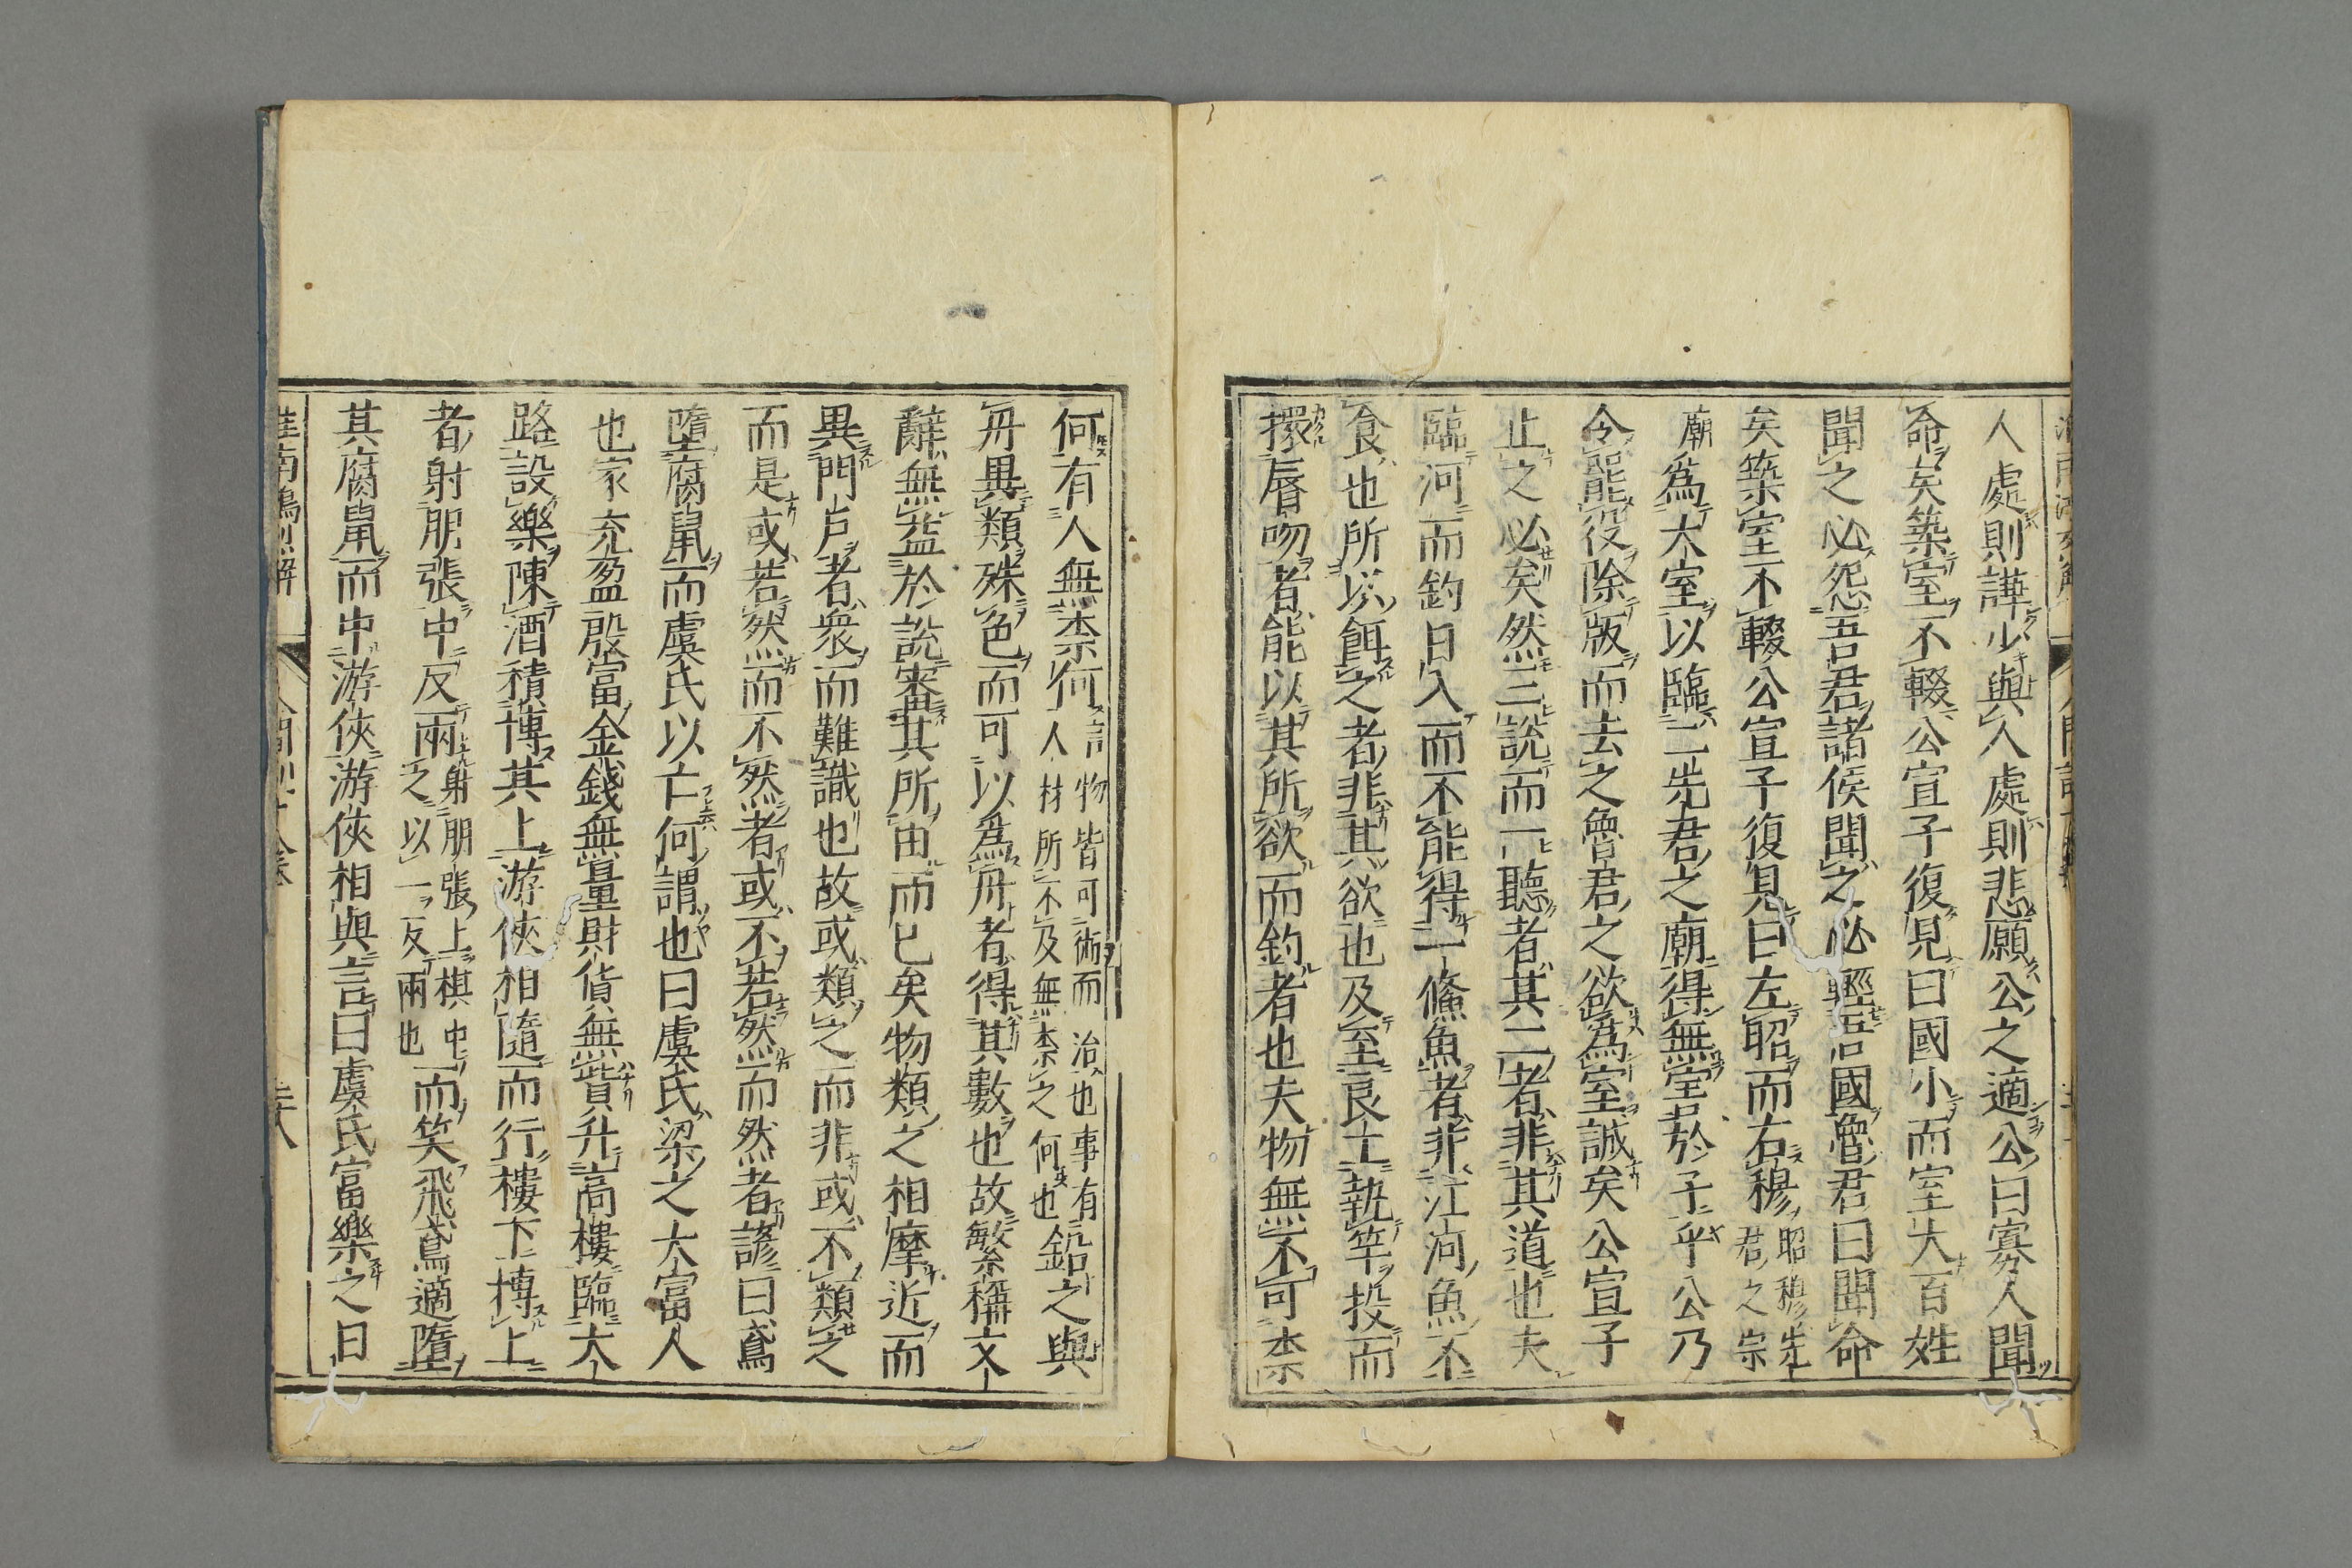 人處則譁少與人處則悲願公之適公曰寡人聞
命矣築室不輟公宣子復見曰國小而室大百姓
聞之必怨吾君諸侯聞之必輕吾國魯君曰聞命
矣築室不輟公宣子復見曰左昭而右穆昭穆先君之宗
廟爲大室以臨二先君之廟得無害於子乎公乃
令罷役除版而去之魯君之欲爲室誠矣公宣子
止之必矣然三說而一聽者其二者非其道也夫
臨河而釣日入而不能得一鯈魚者非江河魚不
食也所以餌之者非其欲也及至良工執竿投而
擐脣吻者能以其所欲而釣者也夫物無不可柰
何有人無柰何言物皆可術而治也事有人材所不及無柰之何也鉛之與
丹異類殊色而可以爲丹者得其數也故繁稱文
辭無益於說審其所由而已矣物類之相摩近而
異門戶者衆而難識也故或類之而非或不類之
而是或若然而不然者或不若然而然者諺曰鳶
墮腐鼠而虞氏以亡何謂也曰虞氏梁之大富人
也家充盈殷富金錢無量財貨無貲升高樓臨大
路設樂陳酒積博其上游俠相隨而行樓下博上
者射朋張中反兩射朋張上棋中之以一反兩也而笑飛鳶適墮
其腐鼠而中游俠游俠相與言曰虞氏富樂之日